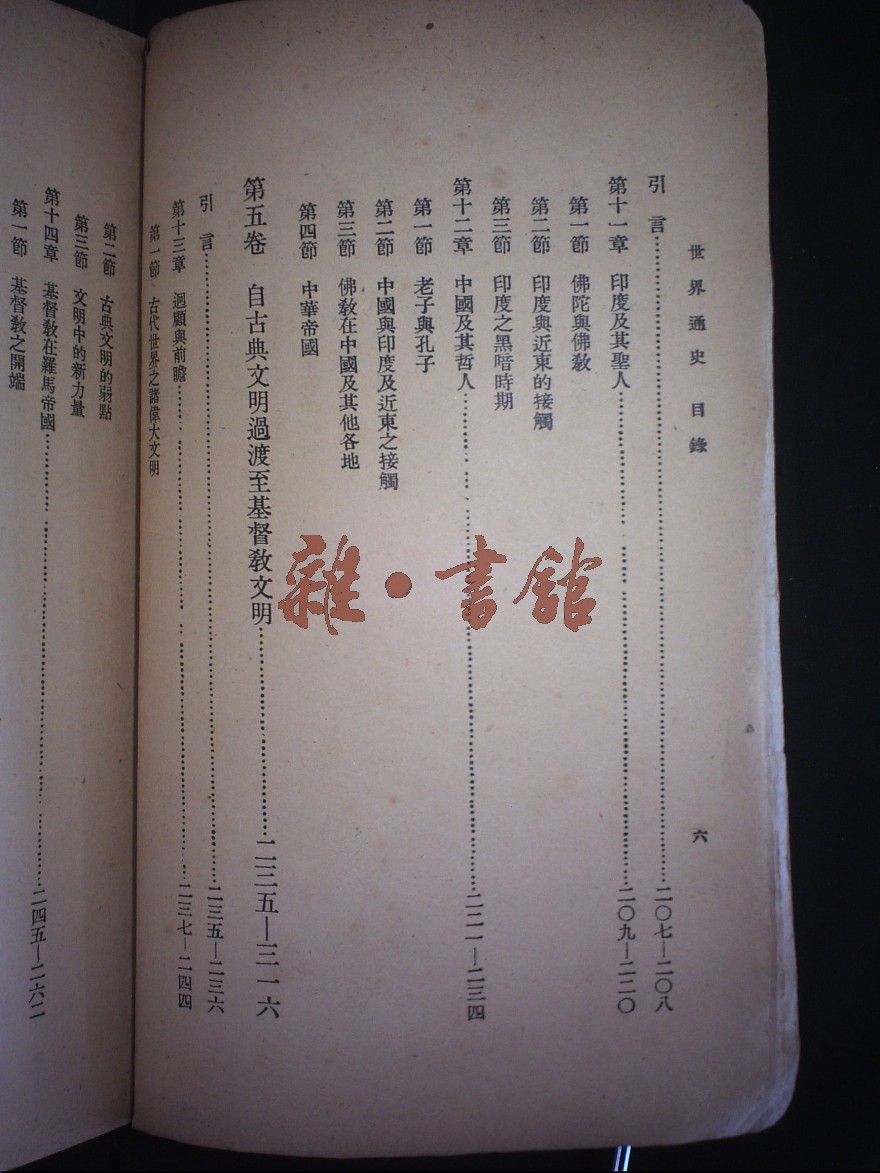 世界通史 目錄
六
引言……二〇七—二〇八
第十一章 印度及其聖人……二〇九—二二〇
第一節 佛陀與佛教
第二節 印度與近東的接觸
第三節 印度之黑暗時期
第十二章 中國及其哲人……二二一—二三四
第一節 老子與孔子
第二節 中國與印度及近東之接觸
第三節 佛教在中國及其他各地
第四節 中華帝國
第五卷 自古典文明過渡至基督教文明……二三五—三一六
引言……二三五—二三六
第十三章 迴顧與前瞻……二三七—二四四
第一節 古代世界之諸偉大文明
第二節 古典文明的弱點
第三節 文明中的新力量
第十四章 基督教在羅馬帝國……二四五—二六二
第一節 基督教之開端
雜·書館